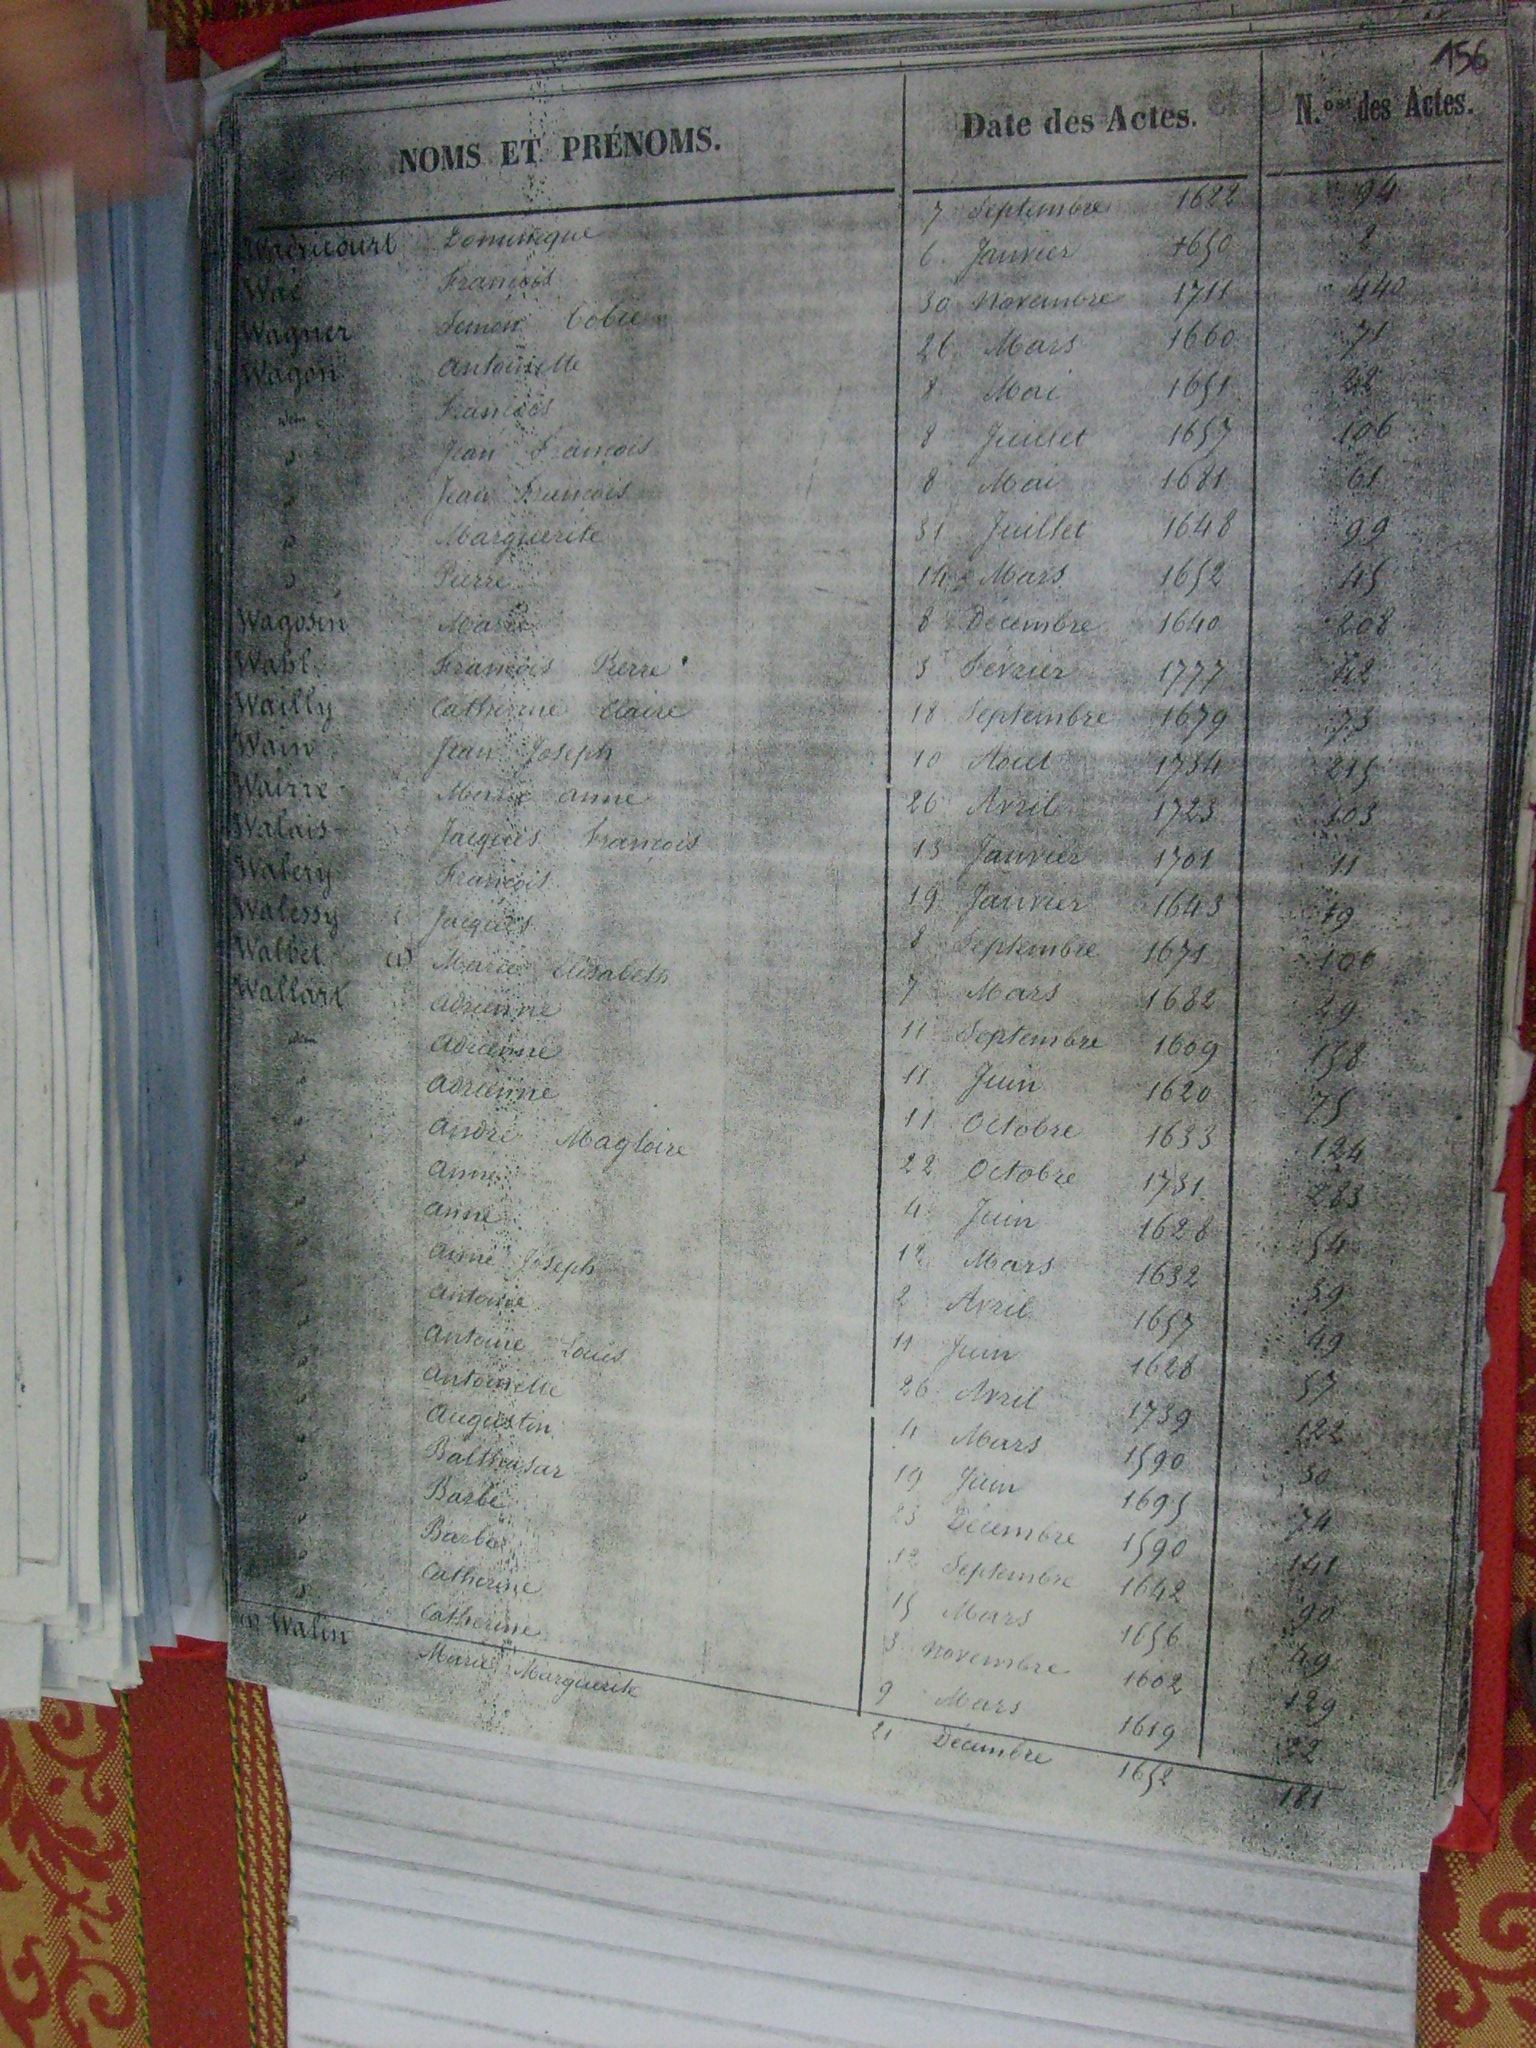 156
NOMS ET PRÉNOMS. Date des Actes. N.os des Actes.
Dominique 7 Septembre 1622 94
François 6 Janvier 1650 2
Wagner Simon Tobie 30 Novembre 1711 440
Wagon Antoinette 26 Mars 1660 71
idem François 8 Mai 1651 42
" Jean François 8 Juillet 1657 106
" Jean François 8 Mai 1681 61
" Marguerite 31 Juillet 1648 99
" Pierre 14 Mars 1652 45
Wagosin Marie 8 Décembre 1640 208
Wahl François Pierre 3 Février 1777 42
Wailly Catherine Claire 18 Septembre 1679 73
Wain Jean Joseph 10 Aout 1734 215
Wairre Marie Anne 26 Avril 1723 103
Walais Jacques François 13 Janvier 1701 11
Walery François 19 Janvier 1643 19
Walessy Jacques 8 Septembre 1671 106
Walbet (1) Marie Elisabeth 7 Mars 1682 29
Wallart Adrienne 11 Septembre 1609 158
idem Adrienne 11 Juin 1620 75
" Adrienne 11 Octobre 1633 124
" André Magloire 22 Octobre 1731 283
" Anne 4 Juin 1628 54
" Anne 12 Mars 1632 39
" Anne Joseph 2 Avril 1657 49
" Antoine 11 Juin 1628 57
" Antoine Louis 26 Avril 1739 122
" Antoinette Mars 1590 30
" Augustin 19 Juin 1695 74
" Balthasar 23 Décembre 1590 141
" Barbe 12 Septembre 1642 90
" Barbe 15 Mars 1656 49
" Catherine 3 Novembre 1602 129
" Catherine 9 Mars 1619 32
(1) Walin Marie Marguerite 21 Décembre 1652 181